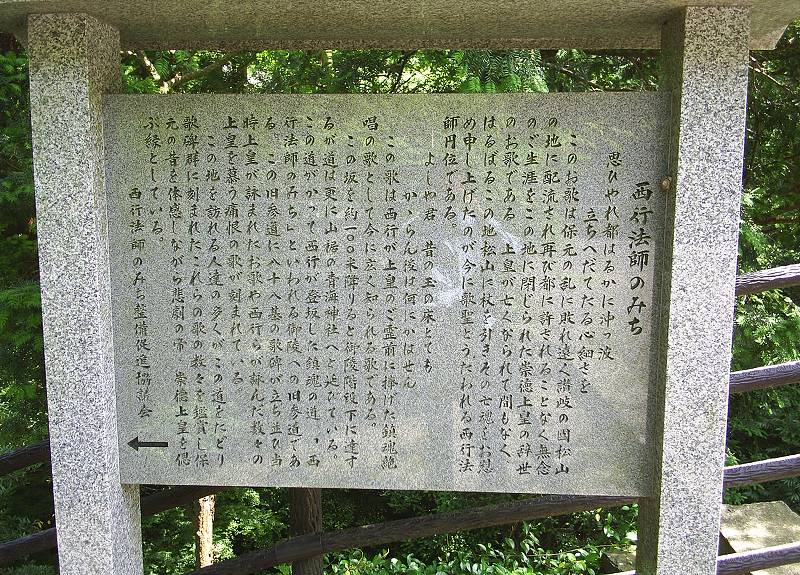 西行法師のみち
思ひやれ都はるかに沖つ波
立ちへだてたる心細さを
このお歌は保元の乱に敗れ遠く讃岐の國松山
の地に配流され再び都に許されることなく無念
のご生涯をこの地に閉じられた崇徳上皇の辞世
のお歌である。上皇が亡くなられて間もなく、
はるばるこの地松山に杖を引きその御魂をお慰
め申し上げたのが今に歌聖とうたわれる西行法
師円位である。
よしや君 昔の玉の床とても
かゝらん後は何にかはせん
この歌は西行が上皇のご霊前に捧げた鎮魂絶
唱の歌として今に広く知られる歌である。
この坂を約一〇〇米降りると御陵階段下に達す
るが道は更に山裾の青海神社へと延びている。
この道がかつて西行が登坂した鎮魂の道、「西
行法師のみち」といわれる御陵への旧参道であ
る。この旧参道に八十八基の歌碑が立ち並び当
時上皇が詠まれたお歌や西行らが詠んだ数々の
上皇を慕う痛恨の歌が刻まれている。
この地を訪れる人達の多くがこの道をたどり
歌碑群に刻まれたこれらの歌の数々を鑑賞し保
元の昔を体感しながら悲劇の帝 崇徳上皇を偲
ぶ縁としている。
西行法師のみち整備促進協議会